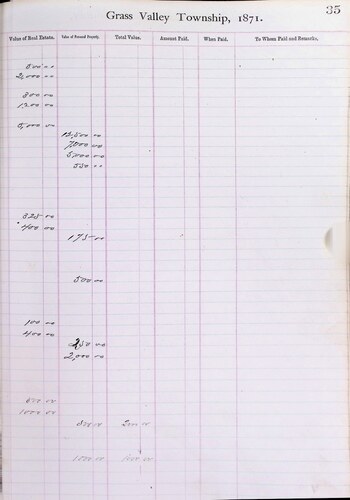 35
Grass Valley Township, 1871.
Value of Real Estate. Value of Personal Property. Total Value. Amount Paid. When Paid. To Whom Paid and Remarks.
800 00
2,000 00
300 00
1200 00
5,000 00
12,500 00
7000 00
5,000 00
550 00
325 00
400 00
175 00
500 00
100 00
400 00
250 00
2,000 00
1000 00